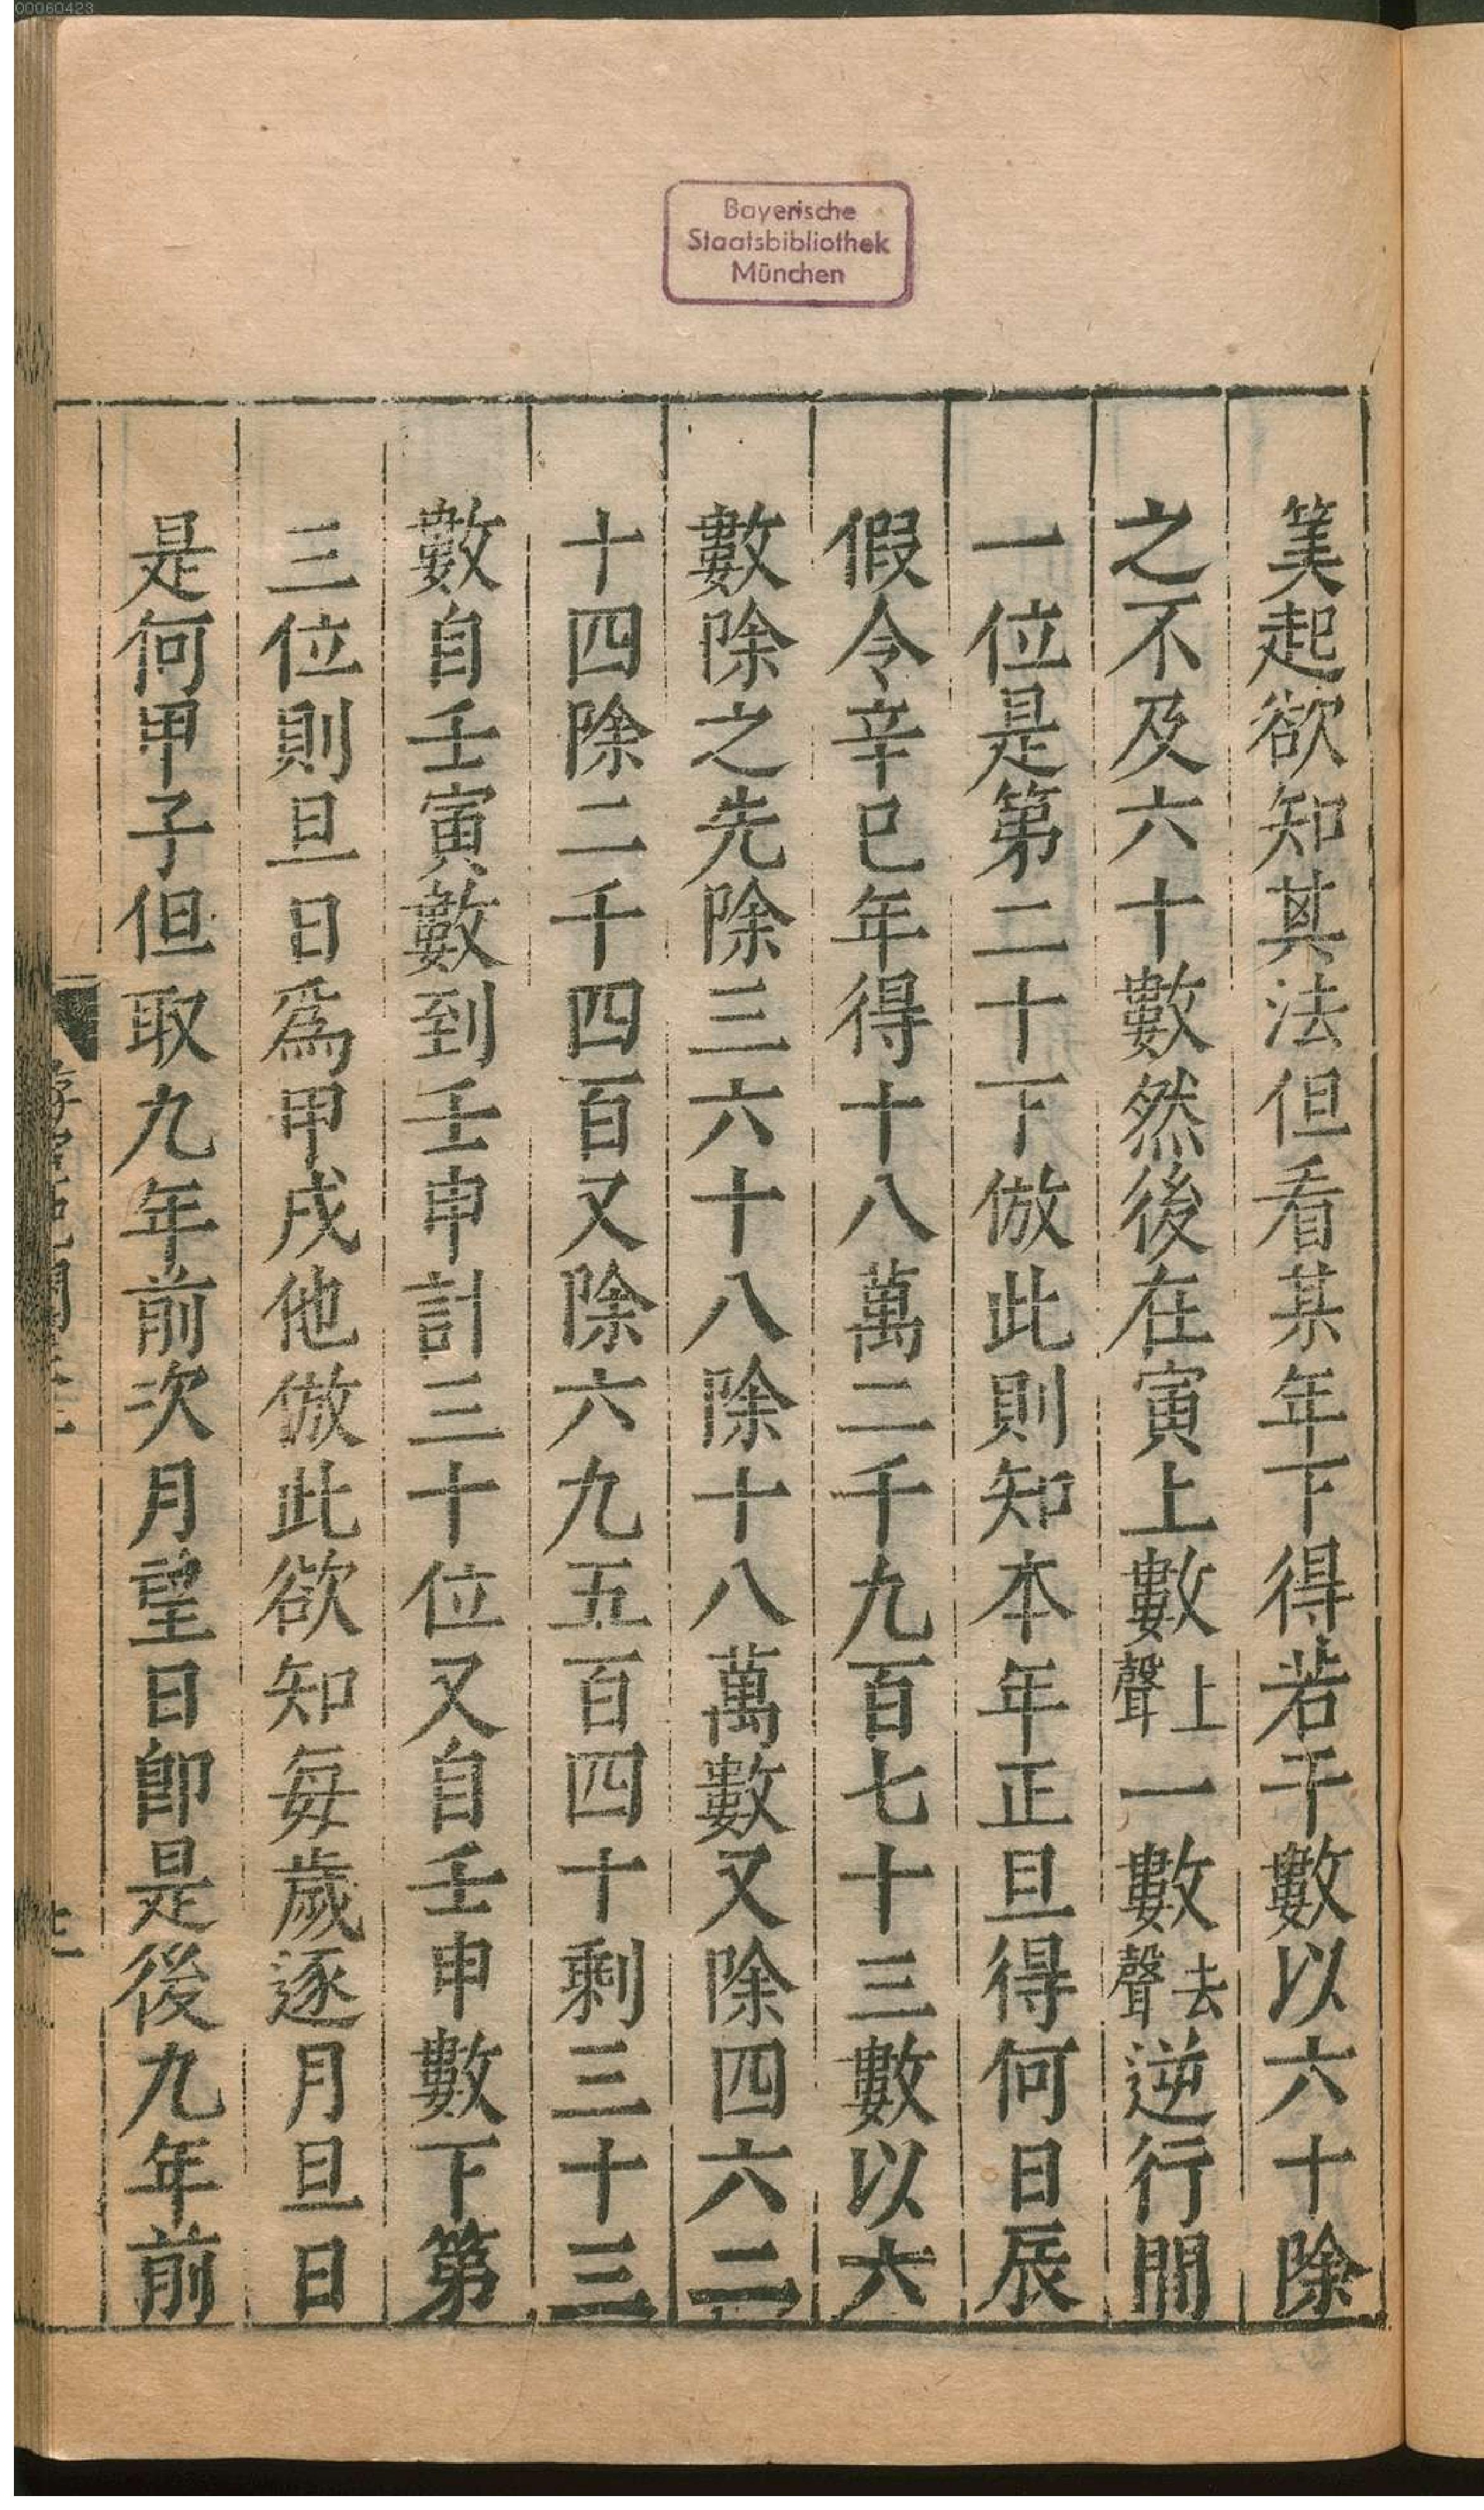 00060423
Bayerische
Staatsbibliothek
München
筭起欲知其法但看某年下得若干數以六十除
之不及六十數然後在寅上數上聲一數去聲逆行間
一位是第二十下倣此則知本年正旦得何日辰
假令辛巳年得十八萬二千九百七十三數以六
數除之先除三六十八除十八萬數又除四六二
十四除二千四百又除六九五百四十剩三十三
數自壬寅數到壬申計三十位又自壬申數下第
三位則旦日爲甲戌他倣此欲知每歲逐月旦日
是何甲子但取九年前次月望日即是後九年前